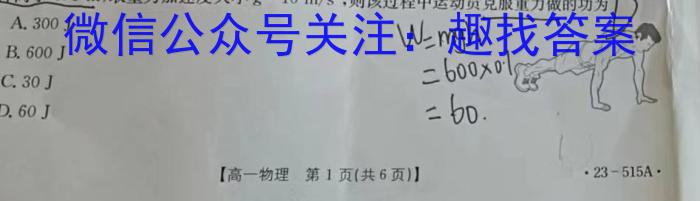 重力加速度大小g=10 m/s²,则该过程中运动员克服重力做的功为
A. 300 J
微信公众号关注：趣找答案
B. 600 J
C. 30 J
D. 60 J
W=mgh
=600×0.1
=60.
【高一物理 第 1 页(共 6 页)】
·23-515A·